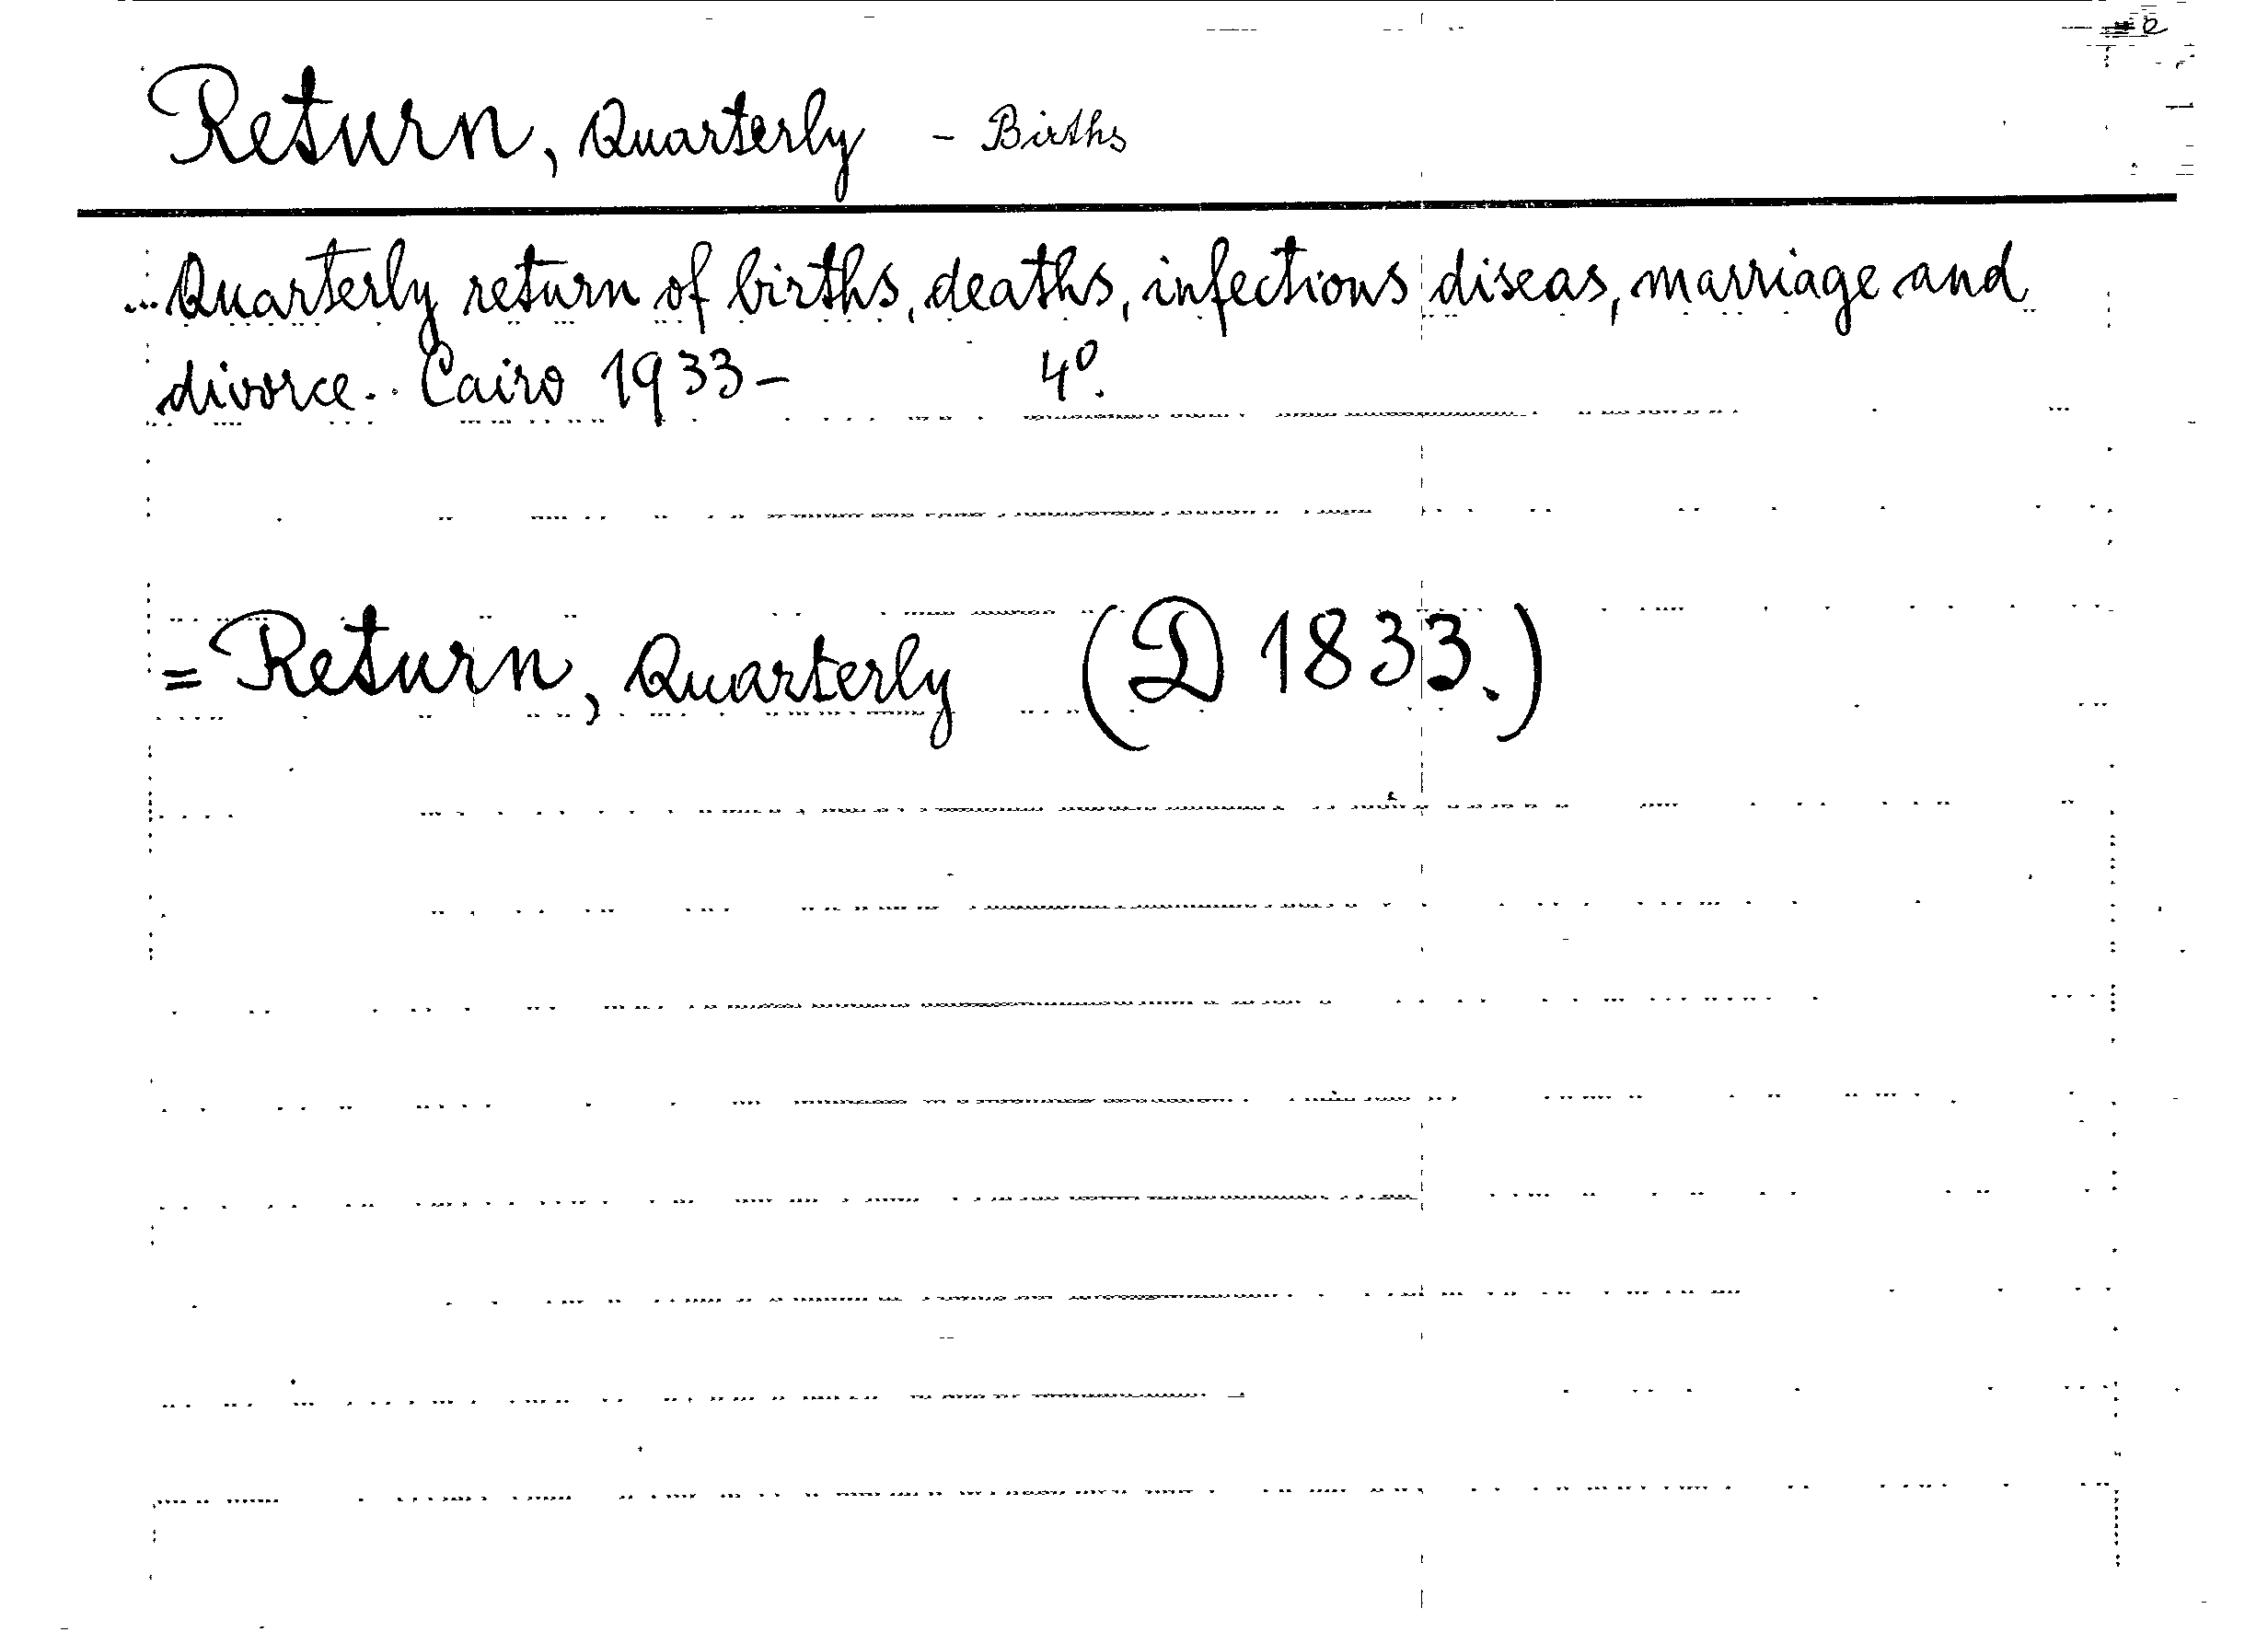 Return, Quarterly - Births
Quarterly return of births, deaths, infections diseas, marriage and
divorce.. Cairo 1933- 4°.
= Return, Quarterly (D 1833.)